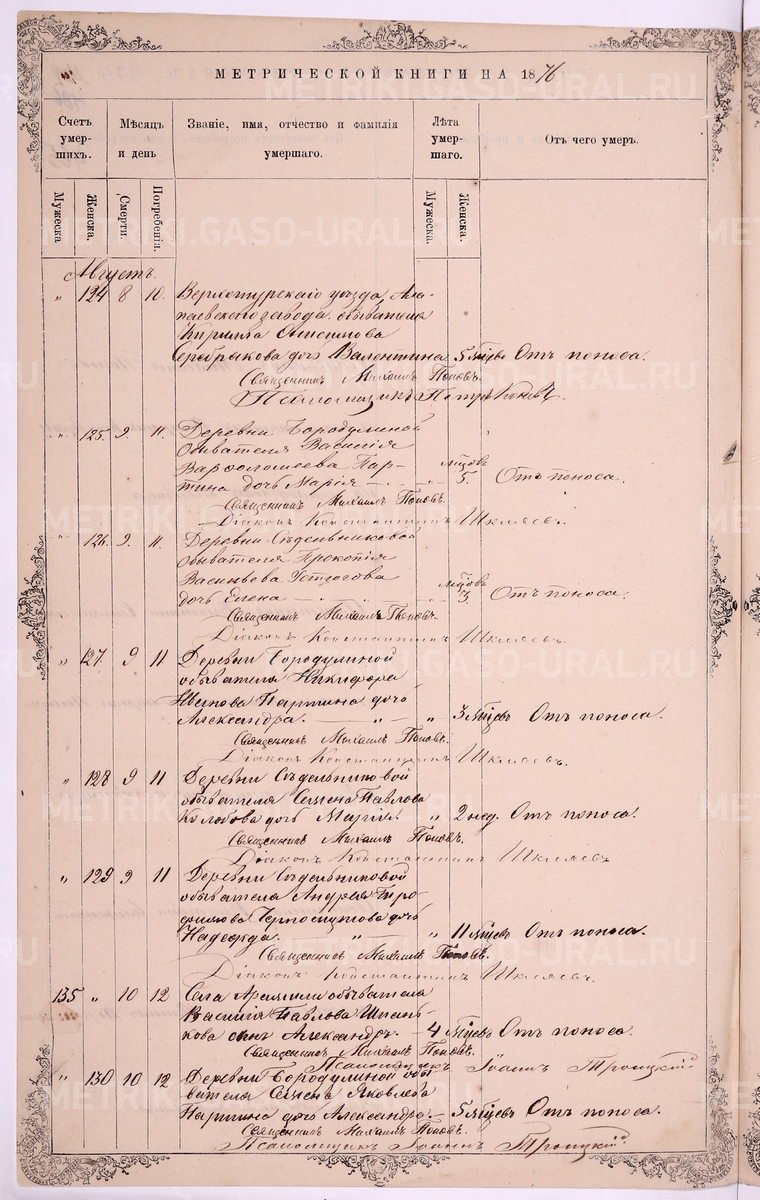 МЕТРИЧЕСКОЙ КНИГИ НА 1876
Счетъ умер-шихъ.
Мѣсяцъ и день
Званіе, имя, отчество и фамилія умершаго.
Лѣта умер-шаго.
Отъ чего умеръ.
Мужеска
Женска.
Смерти.
Погребенія.
Мужеска.
Женска.
Августъ.
„ 124 8 10. Верхотурскаго уѣзда, Ала-
паевскаго завода обывателя
Кирилла Онисимова
Серебрякова дочь Валентина 5 мѣцевъ Отъ поноса.
Священникъ Михаилъ Поповъ.
Псаломщикъ Петръ
„ 125. 9. 11. Деревни Бородулиной
Обывателя Василія
Варѳоломеева Пар-
тина дочь Марія „ мѣцовъ 5. Отъ поноса.
Священникъ Михаилъ Поповъ.
Діаконъ Константинъ Шкляевъ.
„ 126. 9. 11. Деревни Сѣдельниковой
Обывателя Прокопія
Васильева Устюгова
дочь Елена „ мѣцовъ 3. Отъ поноса.
Священникъ Михаилъ Поповъ.
Діаконъ Константинъ Шкляевъ.
„ 127. 9 11 Деревни Бородулиной
обывателя Никифора
Иванова Партина дочь
Александра. „ „ 3 мѣцевъ Отъ поноса.
Священникъ Михаилъ Поповъ.
Діаконъ Константинъ Шкляевъ.
„ 128 9 11 Деревни Сѣдельниковой
обывателя Семена Павлова
Колобова дочь Марія. „ 2 нед. Отъ поноса.
Священникъ Михаилъ Поповъ.
Діаконъ Константинъ Шкляевъ
„ 129 9 11 Деревни Сѣдельниковой
обывателя Андрея Тро-
фимова Черноскутова дочь
Надежда. „ „ 11 мѣцевъ Отъ поноса.
Священникъ Михаилъ Поповъ.
Діаконъ Константинъ Шкляевъ.
135 „ 10 12 Села Арамили обывателя
Василія Павлова
сынъ Александръ. 4 мѣцевъ Отъ поноса.
Священникъ Михаилъ Поповъ.
Псаломщикъ Іоаннъ Троицкій
„ 130 10 12 Деревни Бородулиной обы-
вателя Семена Яковлева
Партина дочь Александра. 5 мѣцевъ Отъ поноса.
Священникъ Михаилъ Поповъ.
Псаломщикъ Іоаннъ Троицкій
METRIKI.GASO-URAL.RU